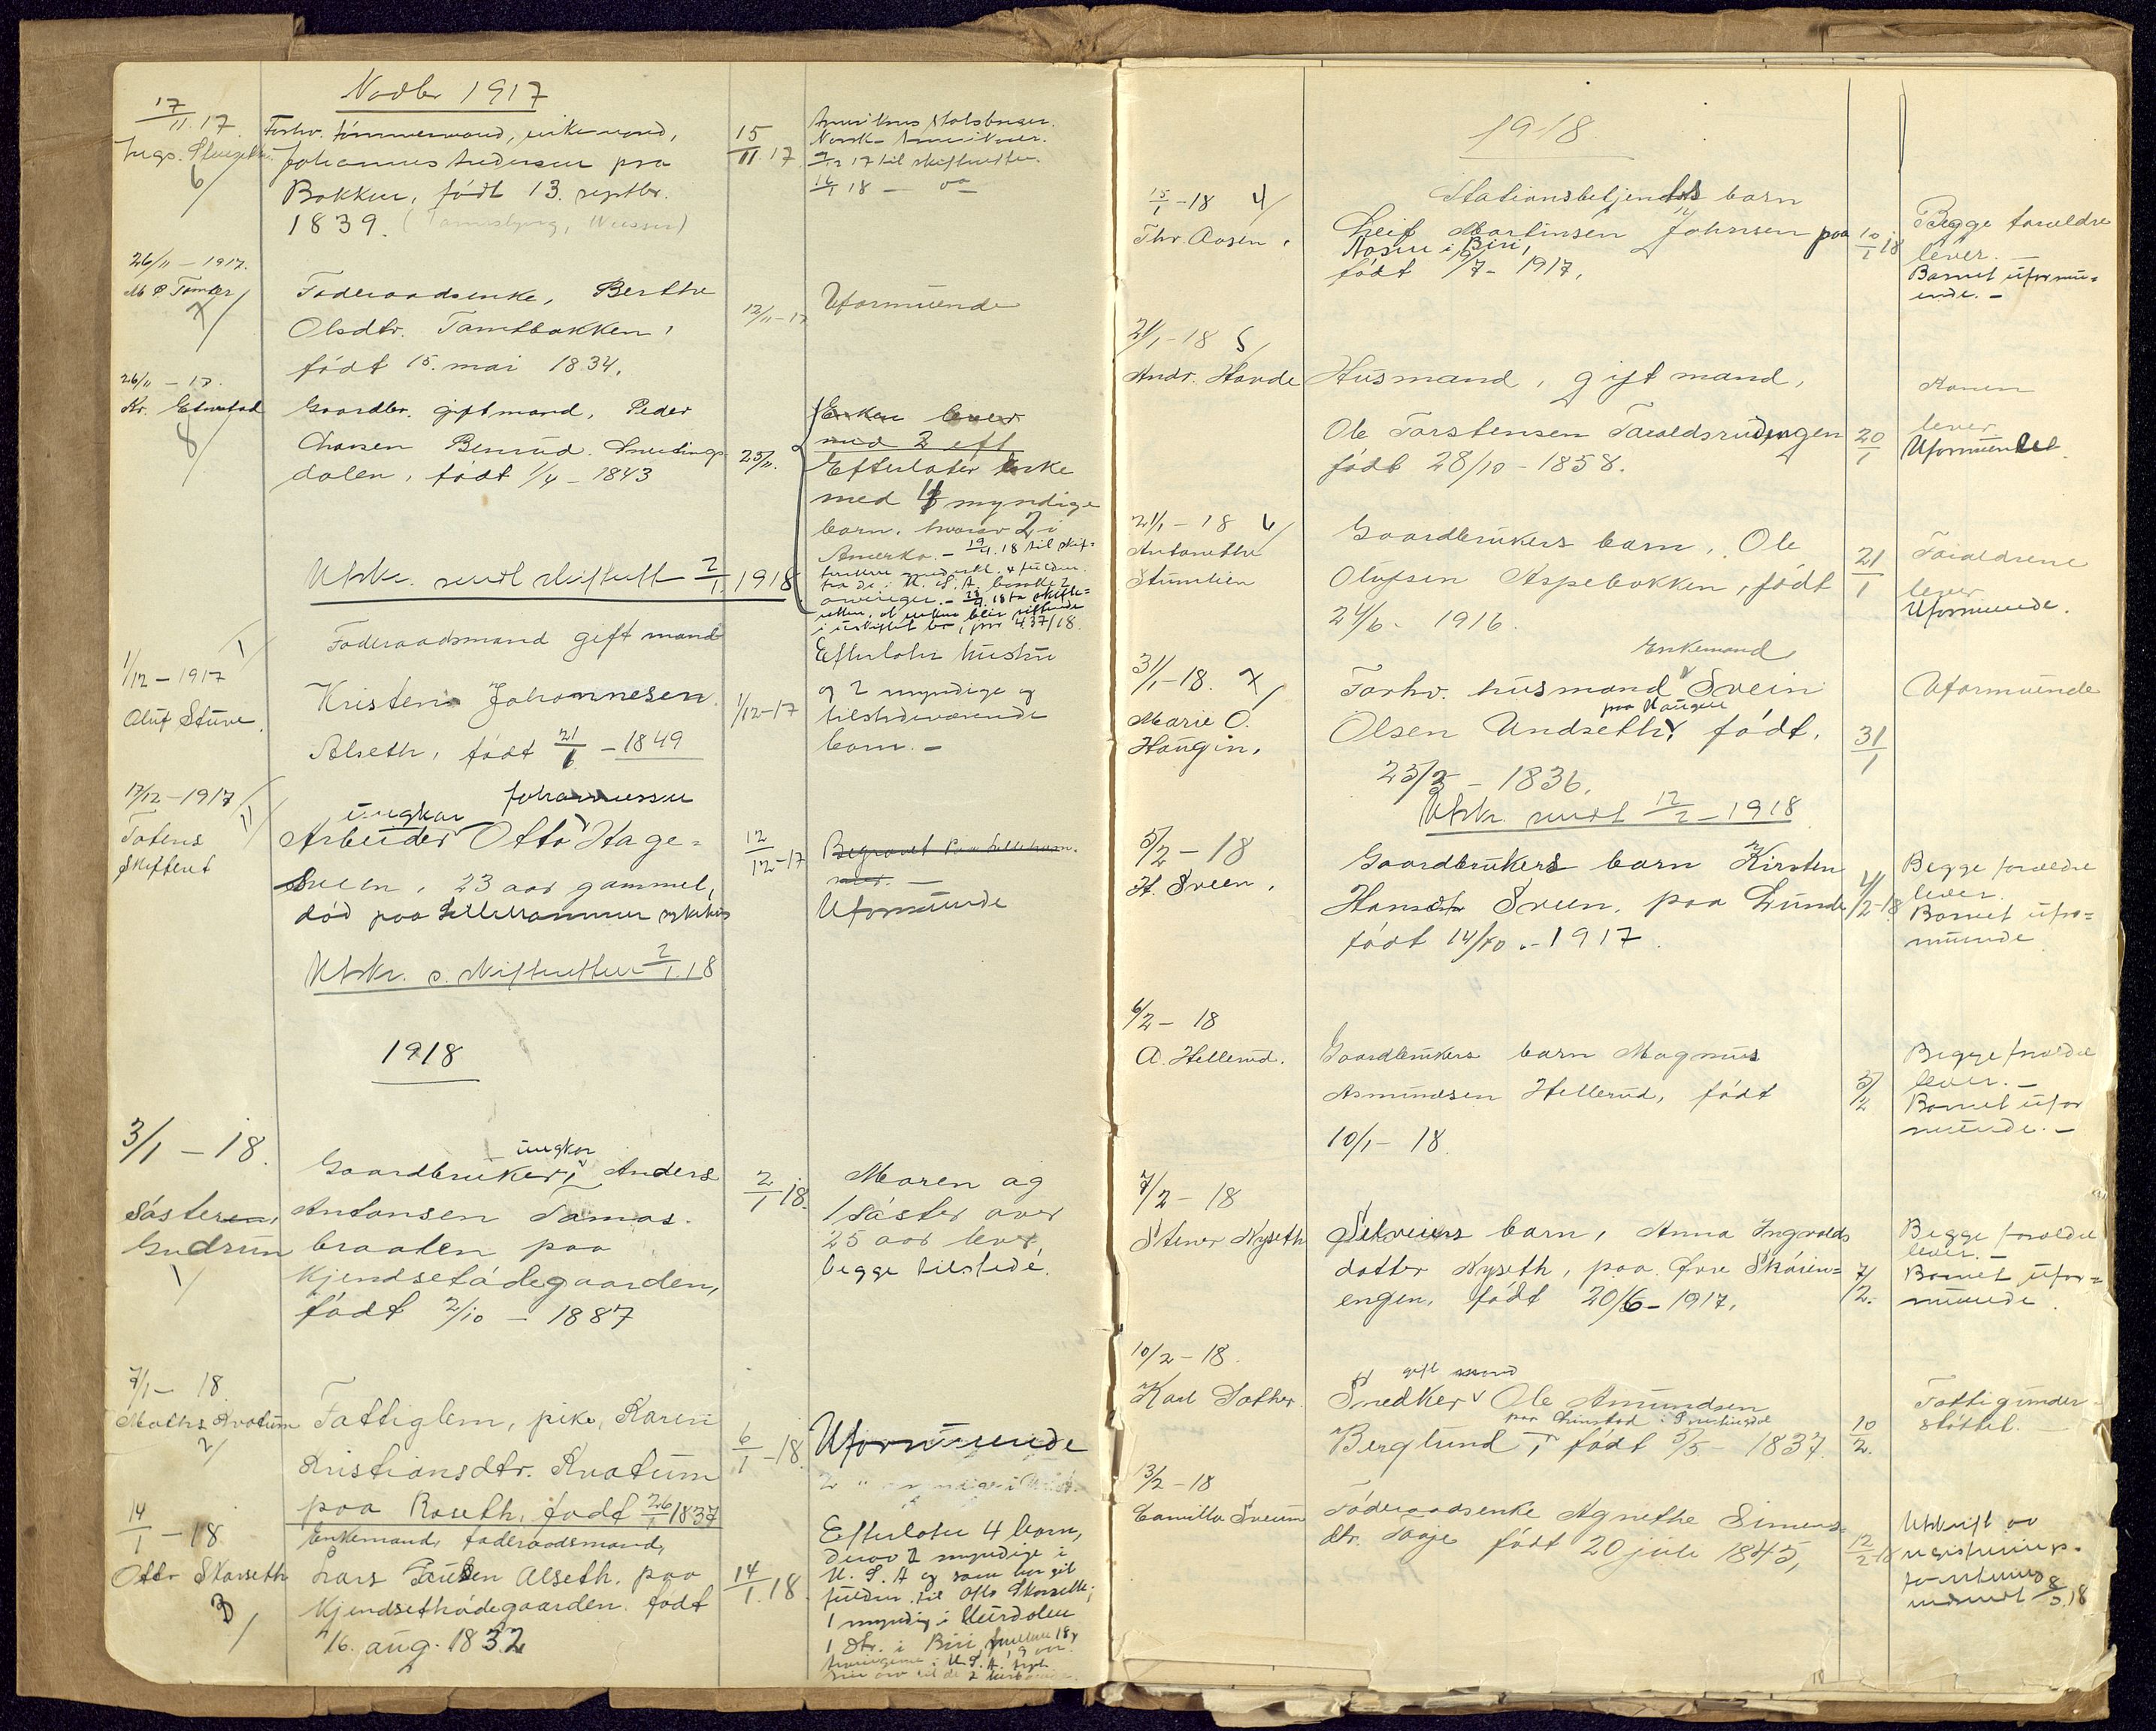 Novbr 1917
17/11.17
6/
Forhv. tømmermand, enkemand,
Johannes Andersen paa
Bakken, født 13. septbr.
1839.
15/11.17
Amerikas statsborger.
Norsk-Amerikaner.
17 til skifteretten.
18 — do
26/11 – 1917.
M P Tomter
7/
Føderaadsenke, Berthe
Olsdtr. Tomtbakken,
født 15. mai 1834.
12/11-17
Uformuende
26/11 – 17.
8/
Gaardbr. gift mand, Peder
Benrud. Snertings
dalen, født 1/4 – 1843
25/11.
Enken lever
med 2 eft
Efterlater Enke
med 4 myndige
barn, hvorav 2 i
Amerka. – 19/4.18 til skif=
Utskr. sendt skifterett 2/1 1918
i uskiftet bo, jnr 437/18.
1/12 – 1917
Oluf Stuve.
1/
Føderaadsmand gift mand
Kristen Johannesen
Alseth, født 21/1 – 1849
1/12-17
Efterlater hustru
og 2 myndige og
tilstedeværende
barn. –
17/12 – 1917
Totens
Skifteret
ungkar Johannessen
Arbeider Otto Hage=
Sveen, 23 aar gammel,
død paa Lillehammer sykehus
12/12-17
Begravet paa Lilleham=
mer. –
Uformuende
Utskr. s. skifteretten 2/1.18
1918
3/1 – 18.
Søsteren,
Gudrun
1/
ungkar
Gaardbruker, Anders
Antonsen Tomas.
braaten paa
Kjendsetødegaarden,
født 2/10 – 1887
2/1 18.
Moren og
1 søster over
25 aar lever,
begge tilstede.
7/1 – 18
Mathis Kvatum
2/
Fattiglem, pike, Karen
Kristiansdtr. Kvatum
paa Roseth, født 26/1 1837
6/1 – 18.
Uformuende
14/1 – 18
Otto Skarseth
3/
Enkemand, føderaadsmand,
Lars Alseth. paa
Kjendsethødegaarden. født
16. aug. 1832
14/1.18
Efterlater 4 barn,
derav 2 myndige i
U. S. A og som har git
fuldm. til Otto Skarseth;
1 myndig i Hurdalen
1 dtr. i Biri
1918
15/1 – 18 4/
Thv. Aasen.
Stationsbetjents barn
Leif Martinsen Johnsen paa
Aasen i Biri,
født 9/7 – 1917,
10/1 18
Begge forældre
lever. –
Barnet uformu=
ende. –
21/1 – 18 5/
Andr. Hovde
Husmand, gift mand,
Ole Torstensen Taraldsrudengen
født 28/10 – 1858.
20/1
Konen
lever
Uformuende.
21/1 – 18 6/
Antonette
Stumlien
Gaardbrukers barn, Ole
Olufsen Aspebakken, født
24/6 – 1916.
21/1
Forældrene
lever
Uformuende.
31/1 – 18. 7/
Marie O.
Haugen,
Enkemand
Forhv. husmand Svein
paa Haugen
Olsen Undseth, født,
25/2 – 1836.
31/1
Uformuende
Utskr. sendt 12/2 – 1918
5/2 – 18
H. Sveen.
Gaardbrukers barn Kirsten
Hansdtr Sveen, paa Lunde
født 14/10 – 1917.
4/2-18
Begge forældre
lever.
Barnet ufor=
muende
6/2 – 18
A. Hellerud.
Gaardbrukers barn Magnus
Asmundsen Hellerud, født
10/1 – 18.
5/2
Begge forældre
lever. –
Barnet ufor
muende. –
7/2 – 18
Stener Nyseth
Selveiers barn, Anna Ingvalds
datter Nyseth, paa Øvre Skåren=
engen, født 20/6 – 1917,
7/2.
Begge forældre
lever. –
Barnet ufor=
muende.
10/2 – 18.
Karl Sother.
gift mand
Snedker Ole Amundsen
Berglund, født 5/5 – 1837.
10/2.
Fattigunder=
støttet.
13/2 – 18
Camilla Sveum
Føderaadsenke Agnethe Simens
dtr. Haje født 20 juli 1845,
12/2 18
Utskrift av
registrerings.
forretning
18